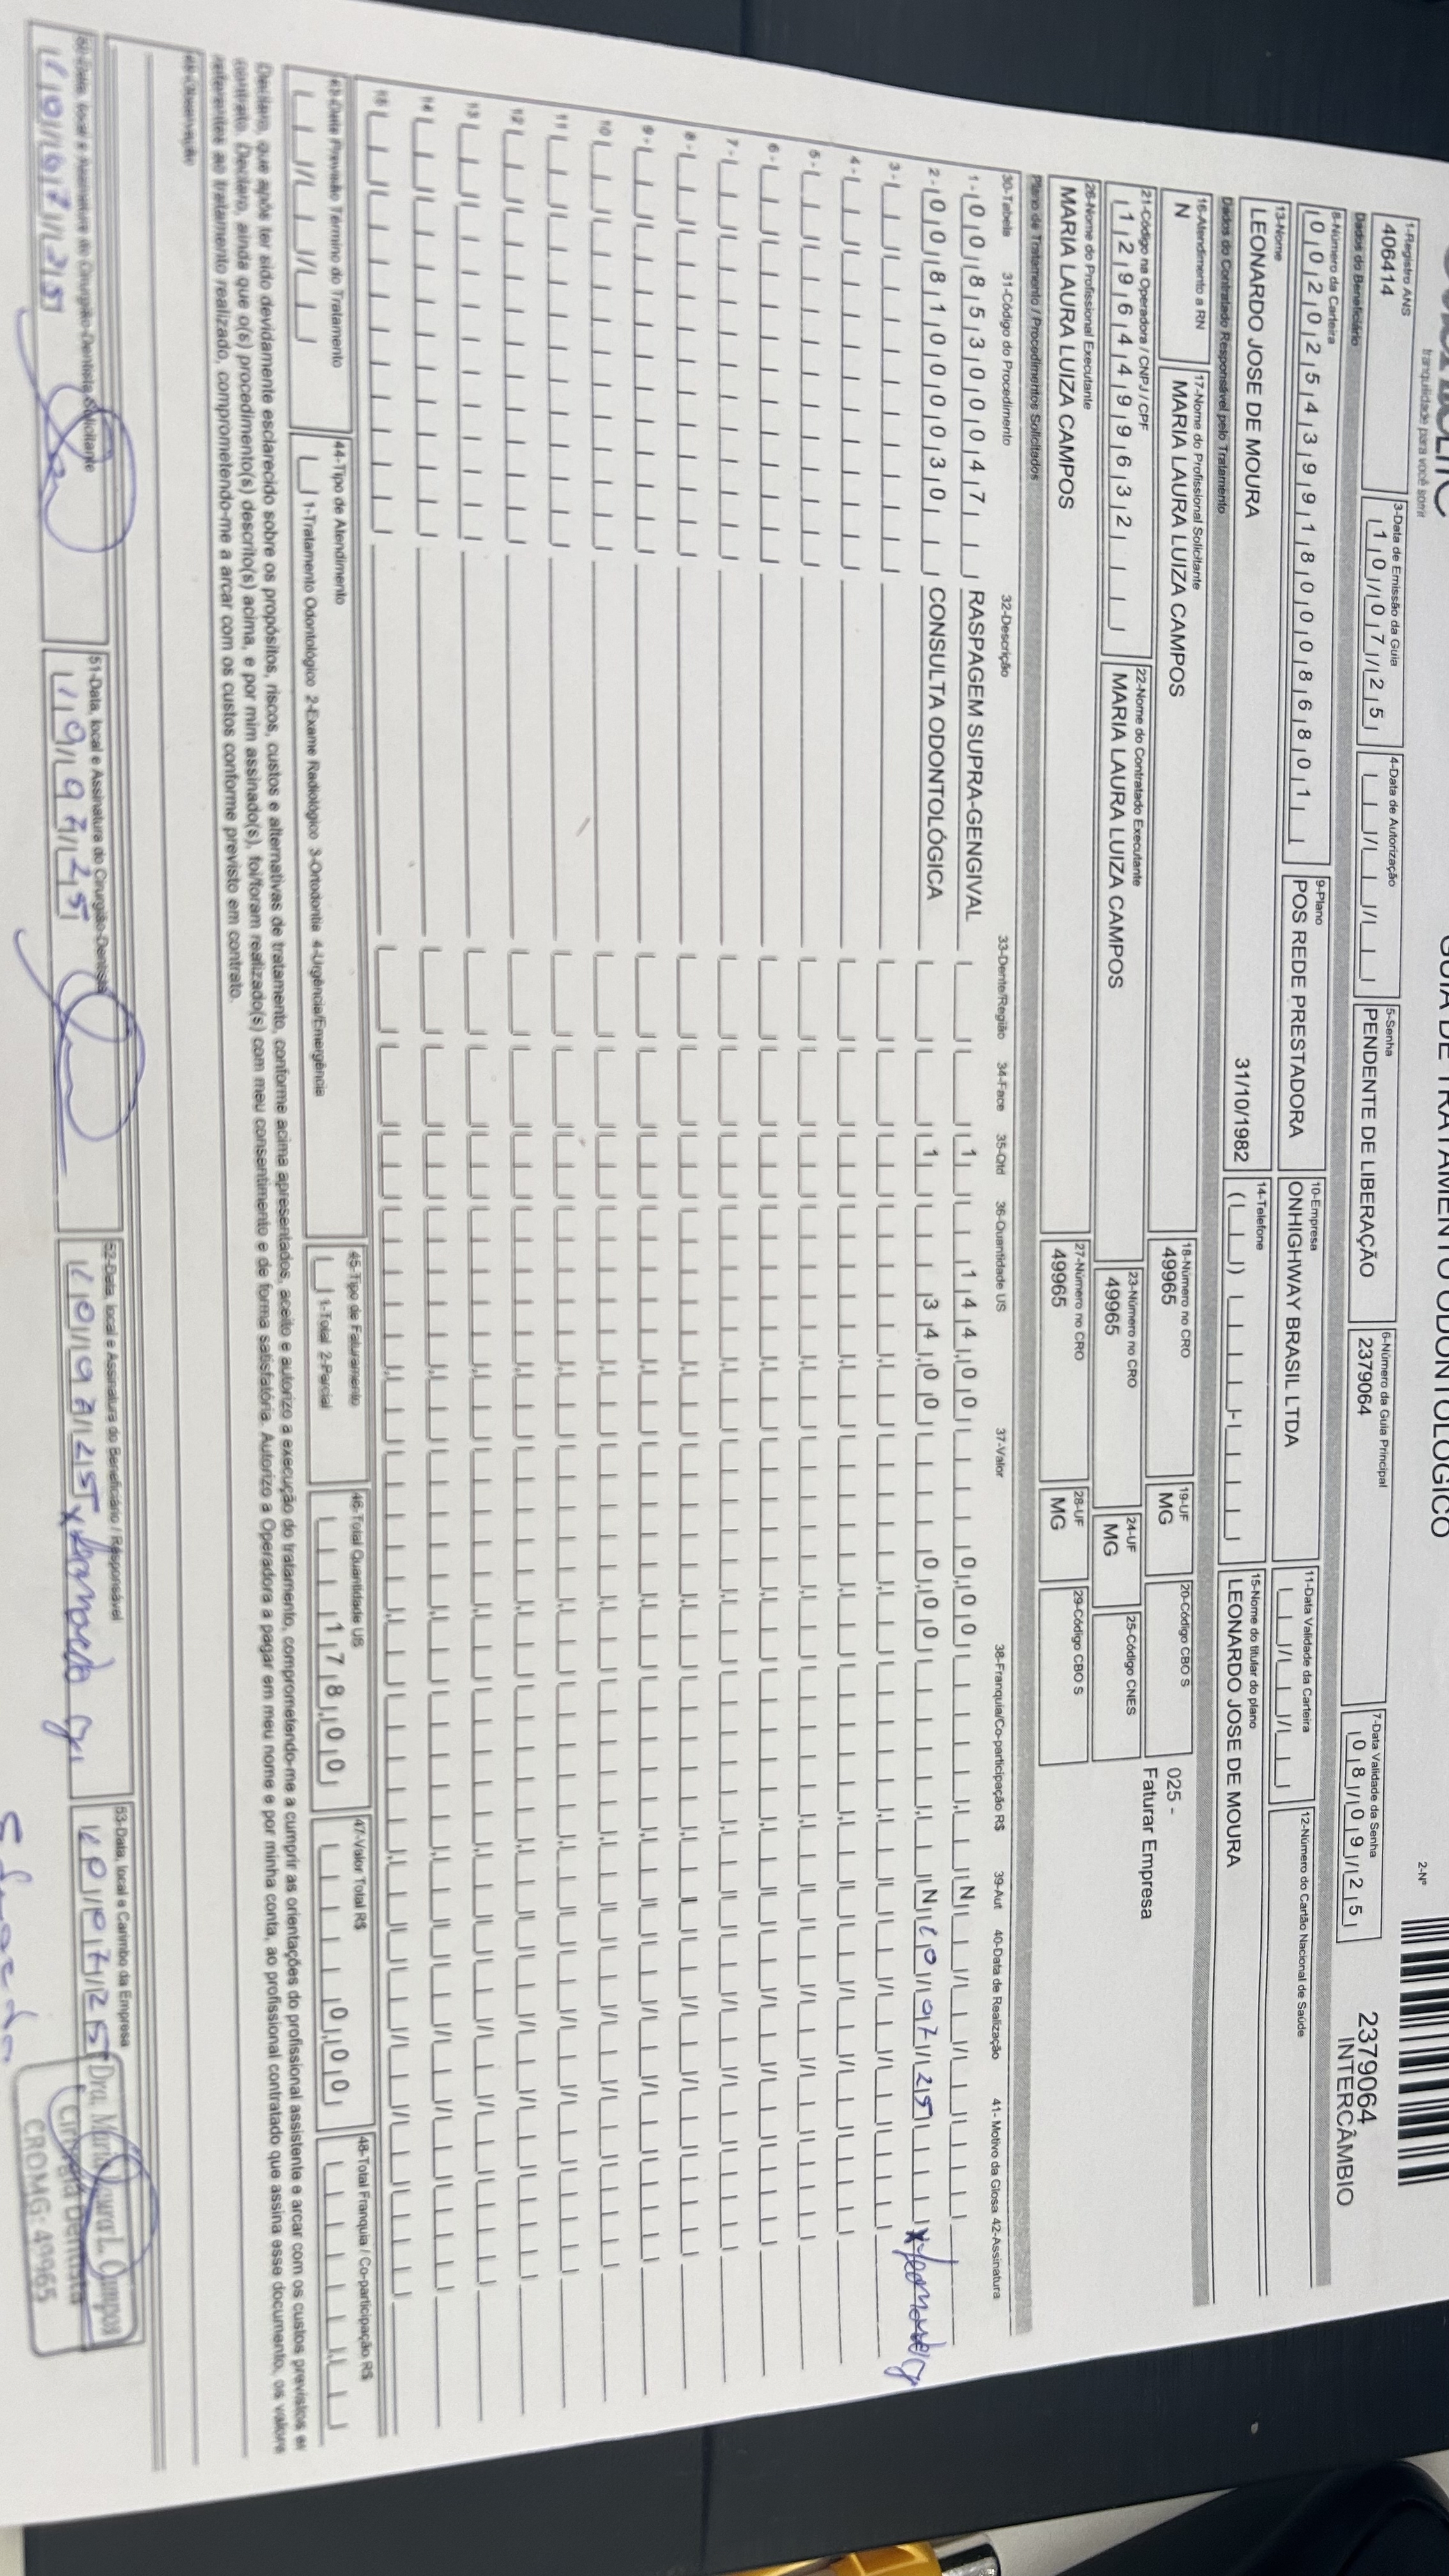 tranquilidade para você sorrir
GUIA DE TRATAMENTO ODONTOLÓGICO
2-Nº
2379064
INTERCÂMBIO
1-Registro ANS
406414
3-Data de Emissão da Guia
10/07/25
4-Data de Autorização
5-Senha
PENDENTE DE LIBERAÇÃO
6-Número da Guia Principal
2379064
7-Data Validade da Senha
08/09/25
Dados do Beneficiário
8-Número da Carteira
00202543991800086801
9-Plano
POS REDE PRESTADORA
10-Empresa
ONHIGHWAY BRASIL LTDA
11-Data Validade da Carteira
12-Número do Cartão Nacional de Saúde
13-Nome
LEONARDO JOSE DE MOURA 31/10/1982
14-Telefone
15-Nome do titular do plano
LEONARDO JOSE DE MOURA
Dados do Contratado Responsável pelo Tratamento
16-Atendimento a RN
N
17-Nome do Profissional Solicitante
MARIA LAURA LUIZA CAMPOS
18-Número no CRO
49965
19-UF
MG
20-Código CBO S
025 -
Faturar Empresa
21-Código na Operadora / CNPJ / CPF
12964499632
22-Nome do Contratado Executante
MARIA LAURA LUIZA CAMPOS
23-Número no CRO
49965
24-UF
MG
25-Código CNES
26-Nome do Profissional Executante
MARIA LAURA LUIZA CAMPOS
27-Número no CRO
49965
28-UF
MG
29-Código CBO S
Plano de Tratamento / Procedimentos Solicitados
30-Tabela 31-Código do Procedimento 32-Descrição 33-Dente/Região 34-Face 35-Qtd 36-Quantidade US 37-Valor 38-Franquia/Co-participação R$ 39-Aut 40-Data de Realização 41- Motivo da Glosa 42-Assinatura
1 - 00 85300047 RASPAGEM SUPRA-GENGIVAL 1 144,00 0,00 N
2 - 00 81000030 CONSULTA ODONTOLÓGICA 1 34,00 0,00 N 10/07/25 x Leonardo
3 -
4 -
5 -
6 -
7 -
8 -
9 -
10
11
12
13
14
15
43-Data Previsão Término do Tratamento
44-Tipo de Atendimento
1-Tratamento Odontológico 2-Exame Radiológico 3-Ortodontia 4-Urgência/Emergência
45-Tipo de Faturamento
1-Total 2-Parcial
46-Total Quantidade US
178,00
47-Valor Total R$
0,00
48-Total Franquia / Co-participação R$
Declaro, que após ter sido devidamente esclarecido sobre os propósitos, riscos, custos e alternativas de tratamento, conforme acima apresentados, aceito e autorizo a execução do tratamento, comprometendo-me a cumprir as orientações do profissional assistente e arcar com os custos previstos em
contrato. Declaro, ainda que o(s) procedimento(s) descrito(s) acima, e por mim assinado(s), foi/foram realizado(s) com meu consentimento e de forma satisfatória. Autorizo a Operadora a pagar em meu nome e por minha conta, ao profissional contratado que assina esse documento, os valores
referentes ao tratamento realizado, comprometendo-me a arcar com os custos conforme previsto em contrato.
49-Observação
50-Data, local e Assinatura do Cirurgião-Dentista Solicitante
10/07/25
51-Data, local e Assinatura do Cirurgião-Dentista
10/07/25
52-Data, local e Assinatura do Beneficiário / Responsável
10/07/25 x Leonardo
53-Data, local e Carimbo da Empresa
10/07/25
Dra. Maria Laura L. Campos
Cirurgiã Dentista
CROMG: 49965